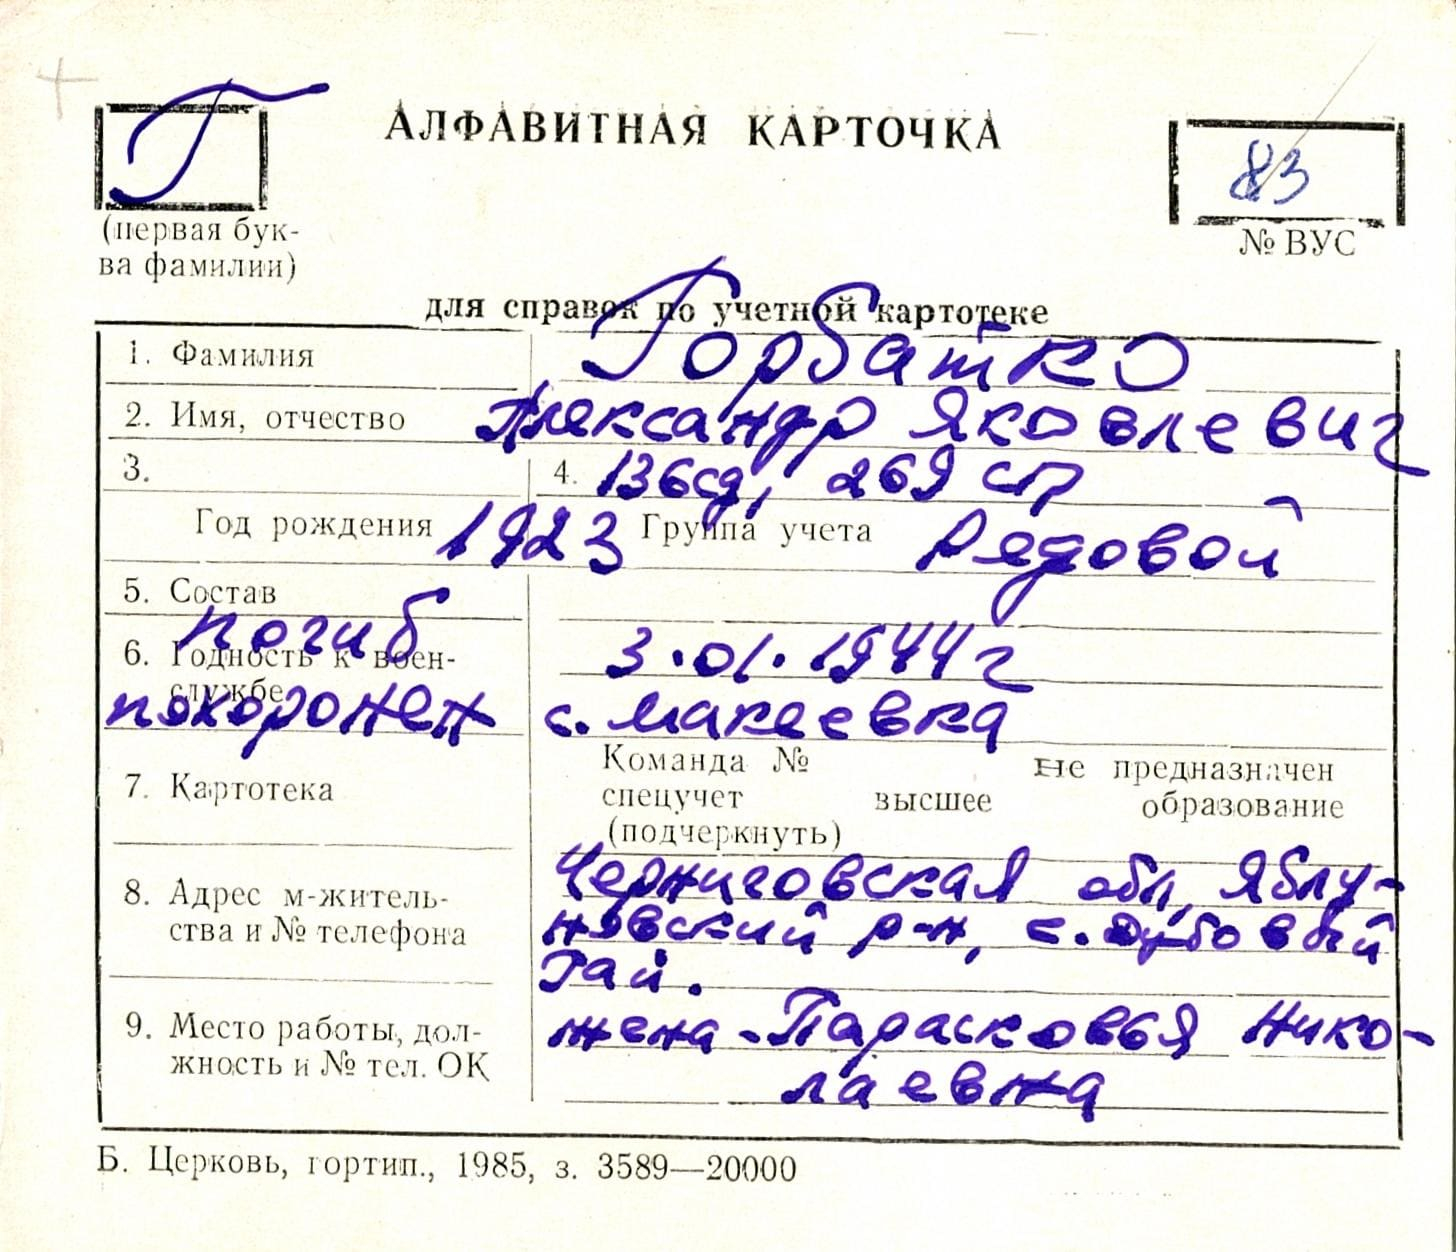 Г
АЛФАВИТНАЯ КАРТОЧКА
83
(первая бук-
ва фамилии)
№ ВУС
для справок по учетной картотеке
1. Фамилия Горбатко
2. Имя, отчество Александр Яковлевич
3. 4. 136сд, 269 сп
Год рождения 1923 Группа учета Рядовой
5. Состав
погиб 3.01.1944 г
6. Годность к воен-
службе
похоронен с. Макеевка
7. Картотека
Команда № не предназначен
спецучет высшее образование
(подчеркнуть)
8. Адрес м-житель-
ства и № телефона
Черниговская обл, Яблу-
новский р-н, с. Дубовый
Гай.
9. Место работы, дол-
жность и № тел. ОК
жена - Парасковья Нико-
лаевна
Б. Церковь, гортип., 1985, з. 3589—20000